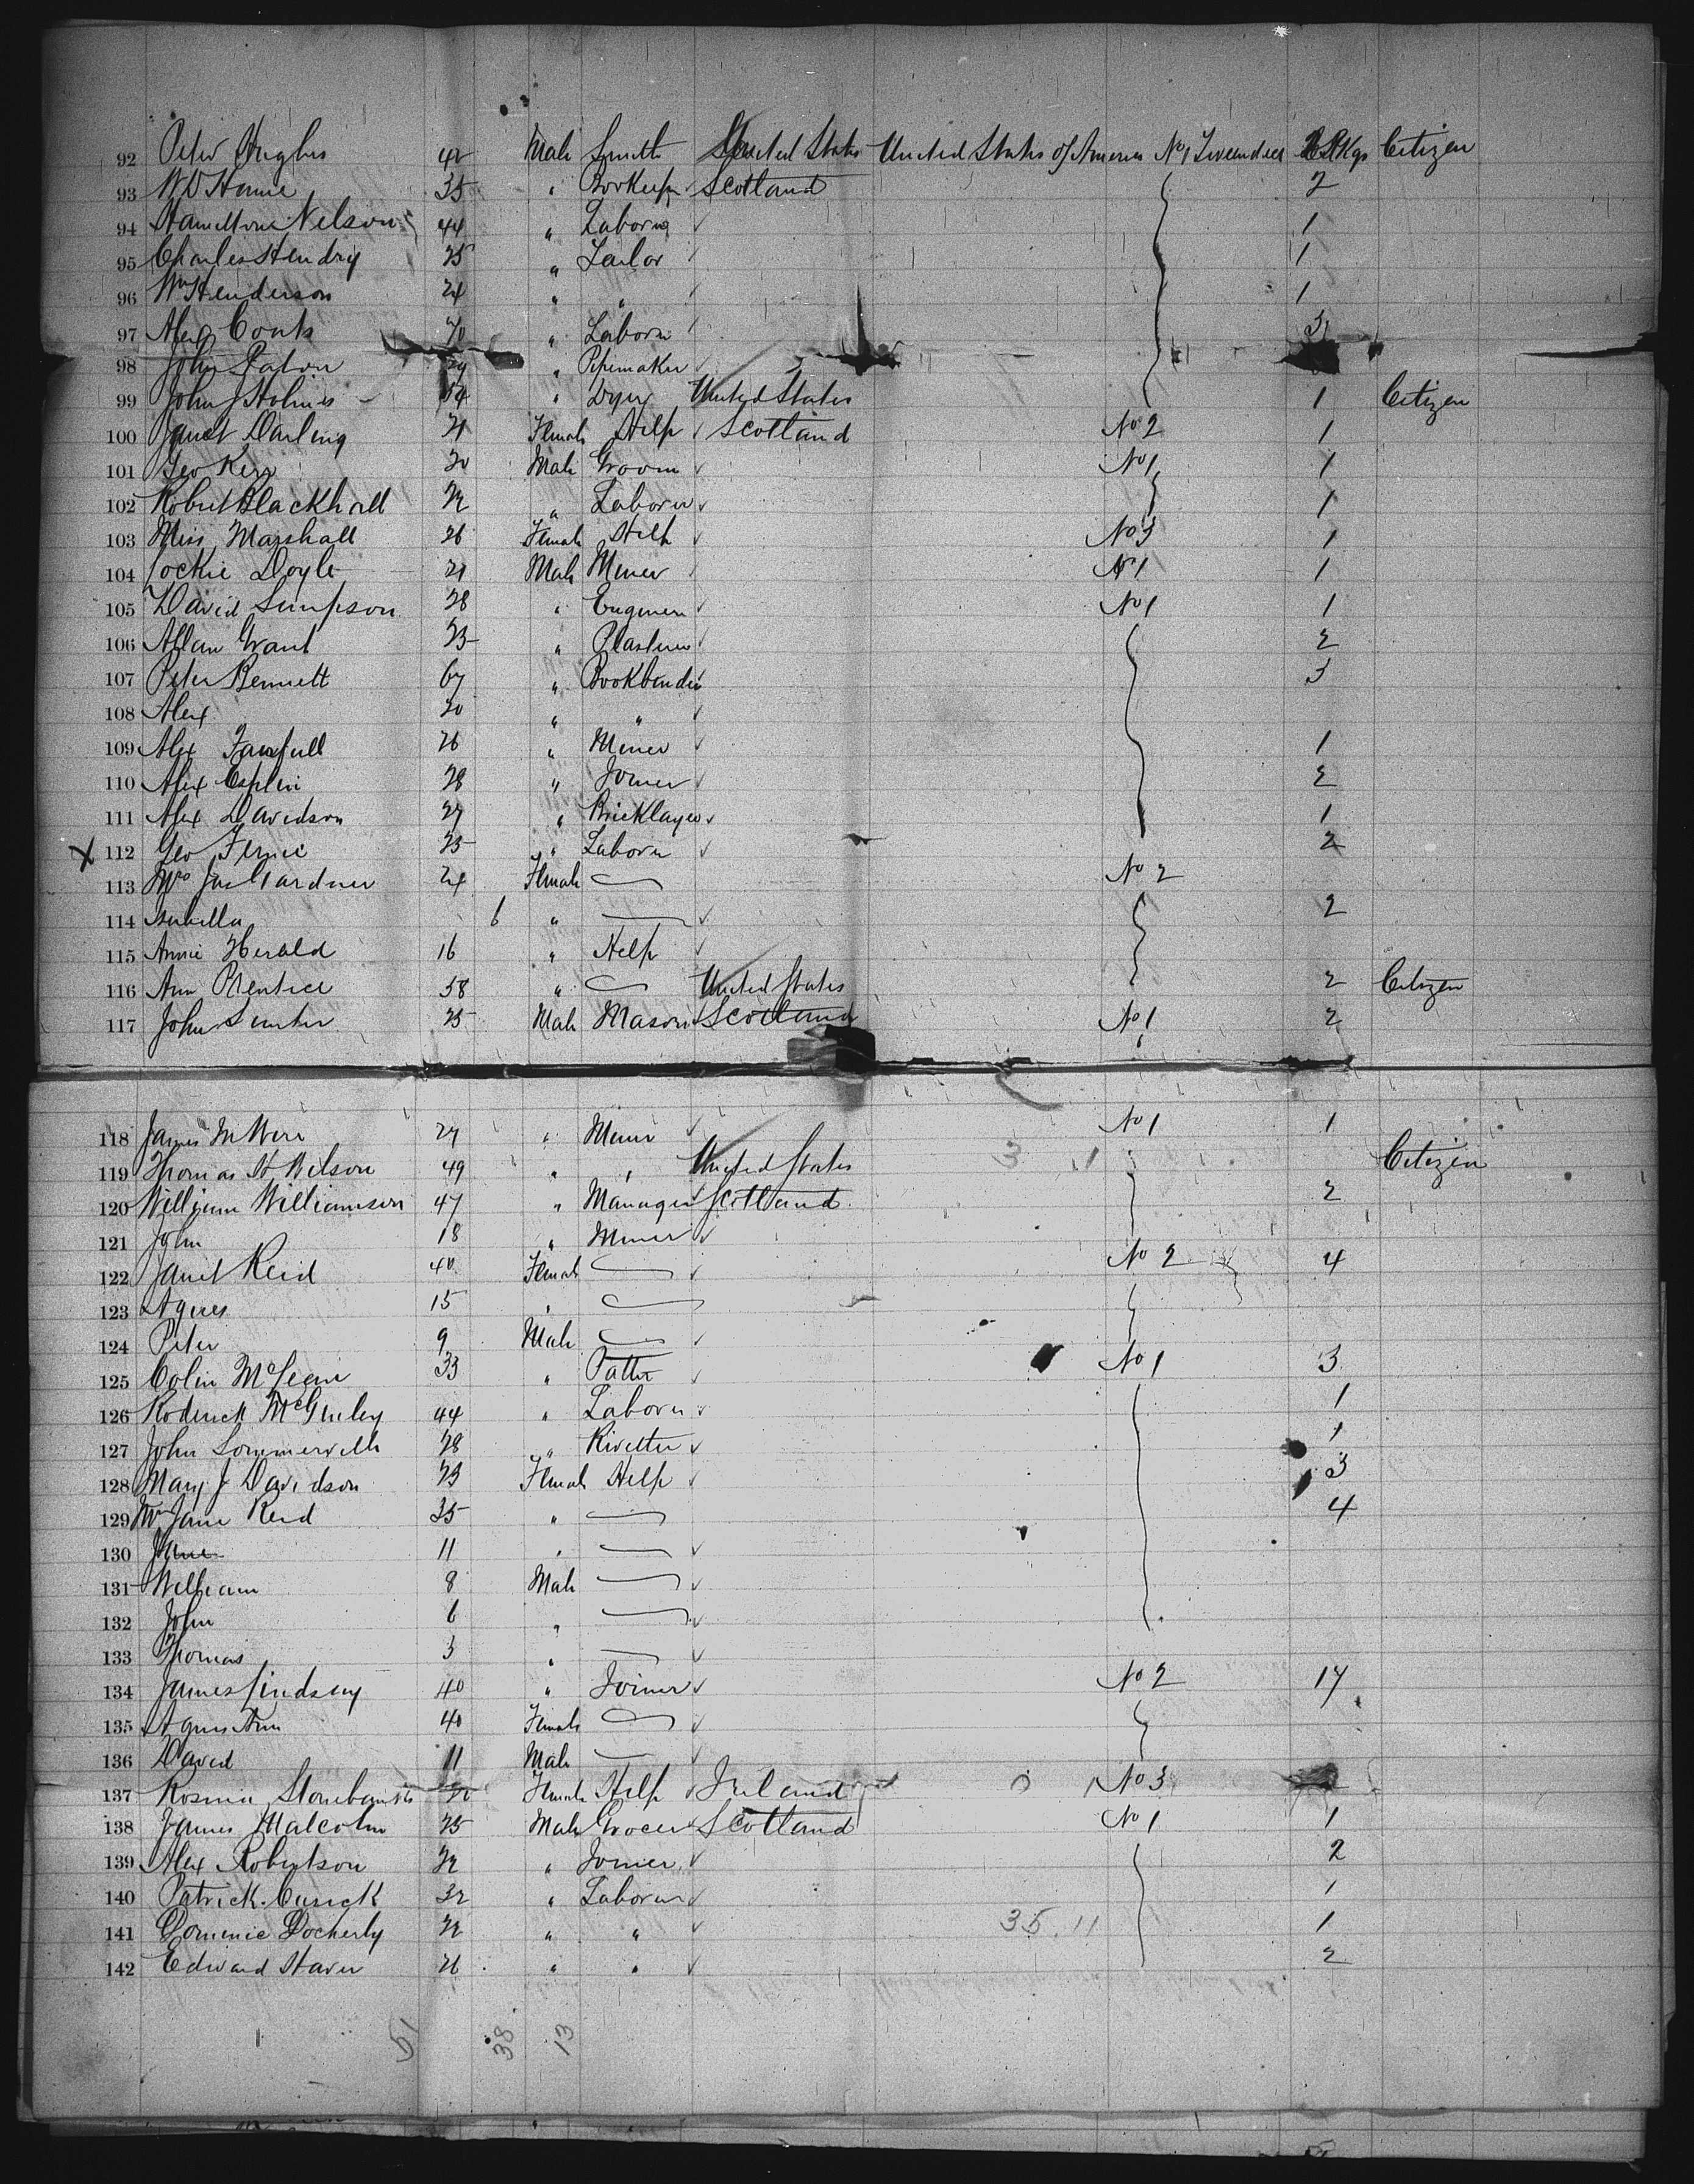 92 Peter Hughes 42 Male Smith United States United States of America No 1 Tweendeck 2 Pkgs Citizen
93 W D Hume 35 " Bookeeper Scotland 2
94 Hamilton Nelson 44 " Laborer 1
95 Charles Hendry 25 " Tailor 1
96 Wm Henderson 24 " " 1
97 Alex Couts 40 " Laborer 3
98 John Paton 29 " Pipemaker
99 John J Holmes 54 " Dyer United States 1 Citizen
100 Janet Darling 21 Female Help Scotland No 2 1
101 Geo Kerr 20 Male Groom No 1 1
102 Robert Blackhall 22 " Laborer 1
103 Miss Marshall 26 Female Help No 3 1
104 Jockie Doyle 21 Male Miner No 1 1
105 David Simpson 28 " Engineer No 1 1
106 Allan Grant 23 " Plasterer 2
107 Peter Bennett 67 " Bookbinder 3
108 Alex 20 " "
109 Alex Fairfull 26 " Miner 1
110 Alex Esplin 28 " Joiner 2
111 Alex Davidson 27 " Bricklayer 1
X 112 Geo Fernie 25 " Laborer 2
113 Mrs Jas Gardner 24 Female No 2
114 Isabella 6 " 2
115 Annie Herald 16 " Help
116 Ann Prentice 58 " United States 2 Citizen
117 John Sunter 25 Male Mason Scotland No 1 2
118 James McWere 27 " Miner No 1 1
119 Thomas H Wilson 49 " " United States 3 1 Citizen
120 William Williamson 47 " Manager Scotland 2
121 John 18 " Miner
122 Janet Reid 40 Female No 2 4
123 Agnes 15 "
124 Peter 9 Male
125 Colin McLean 33 " Patter No 1 3
126 Roderick McGinley 44 " Laborer 1
127 John Sommerville 28 " Rivetter 1
128 Mary J Davidson 23 Female Help 3
129 Mrs Jane Reid 35 " 4
130 Jane 11 "
131 William 8 Male
132 John 6 "
133 Thomas 3 "
134 James Lindsay 40 " Joiner No 2 17
135 Agnes Ann 40 Female
136 David 11 Male
137 Rosina 20 Female Help Ireland 0 1 No 3
138 James Malcolm 25 Male Grocer Scotland No 1 1
139 Alex Robertson 22 " Joiner 2
140 Patrick Cusick 32 " Laborer 1
141 Dominic Docherty 22 " " 35 . 11 1
142 Edward Haver 26 " " 2
51 38 13